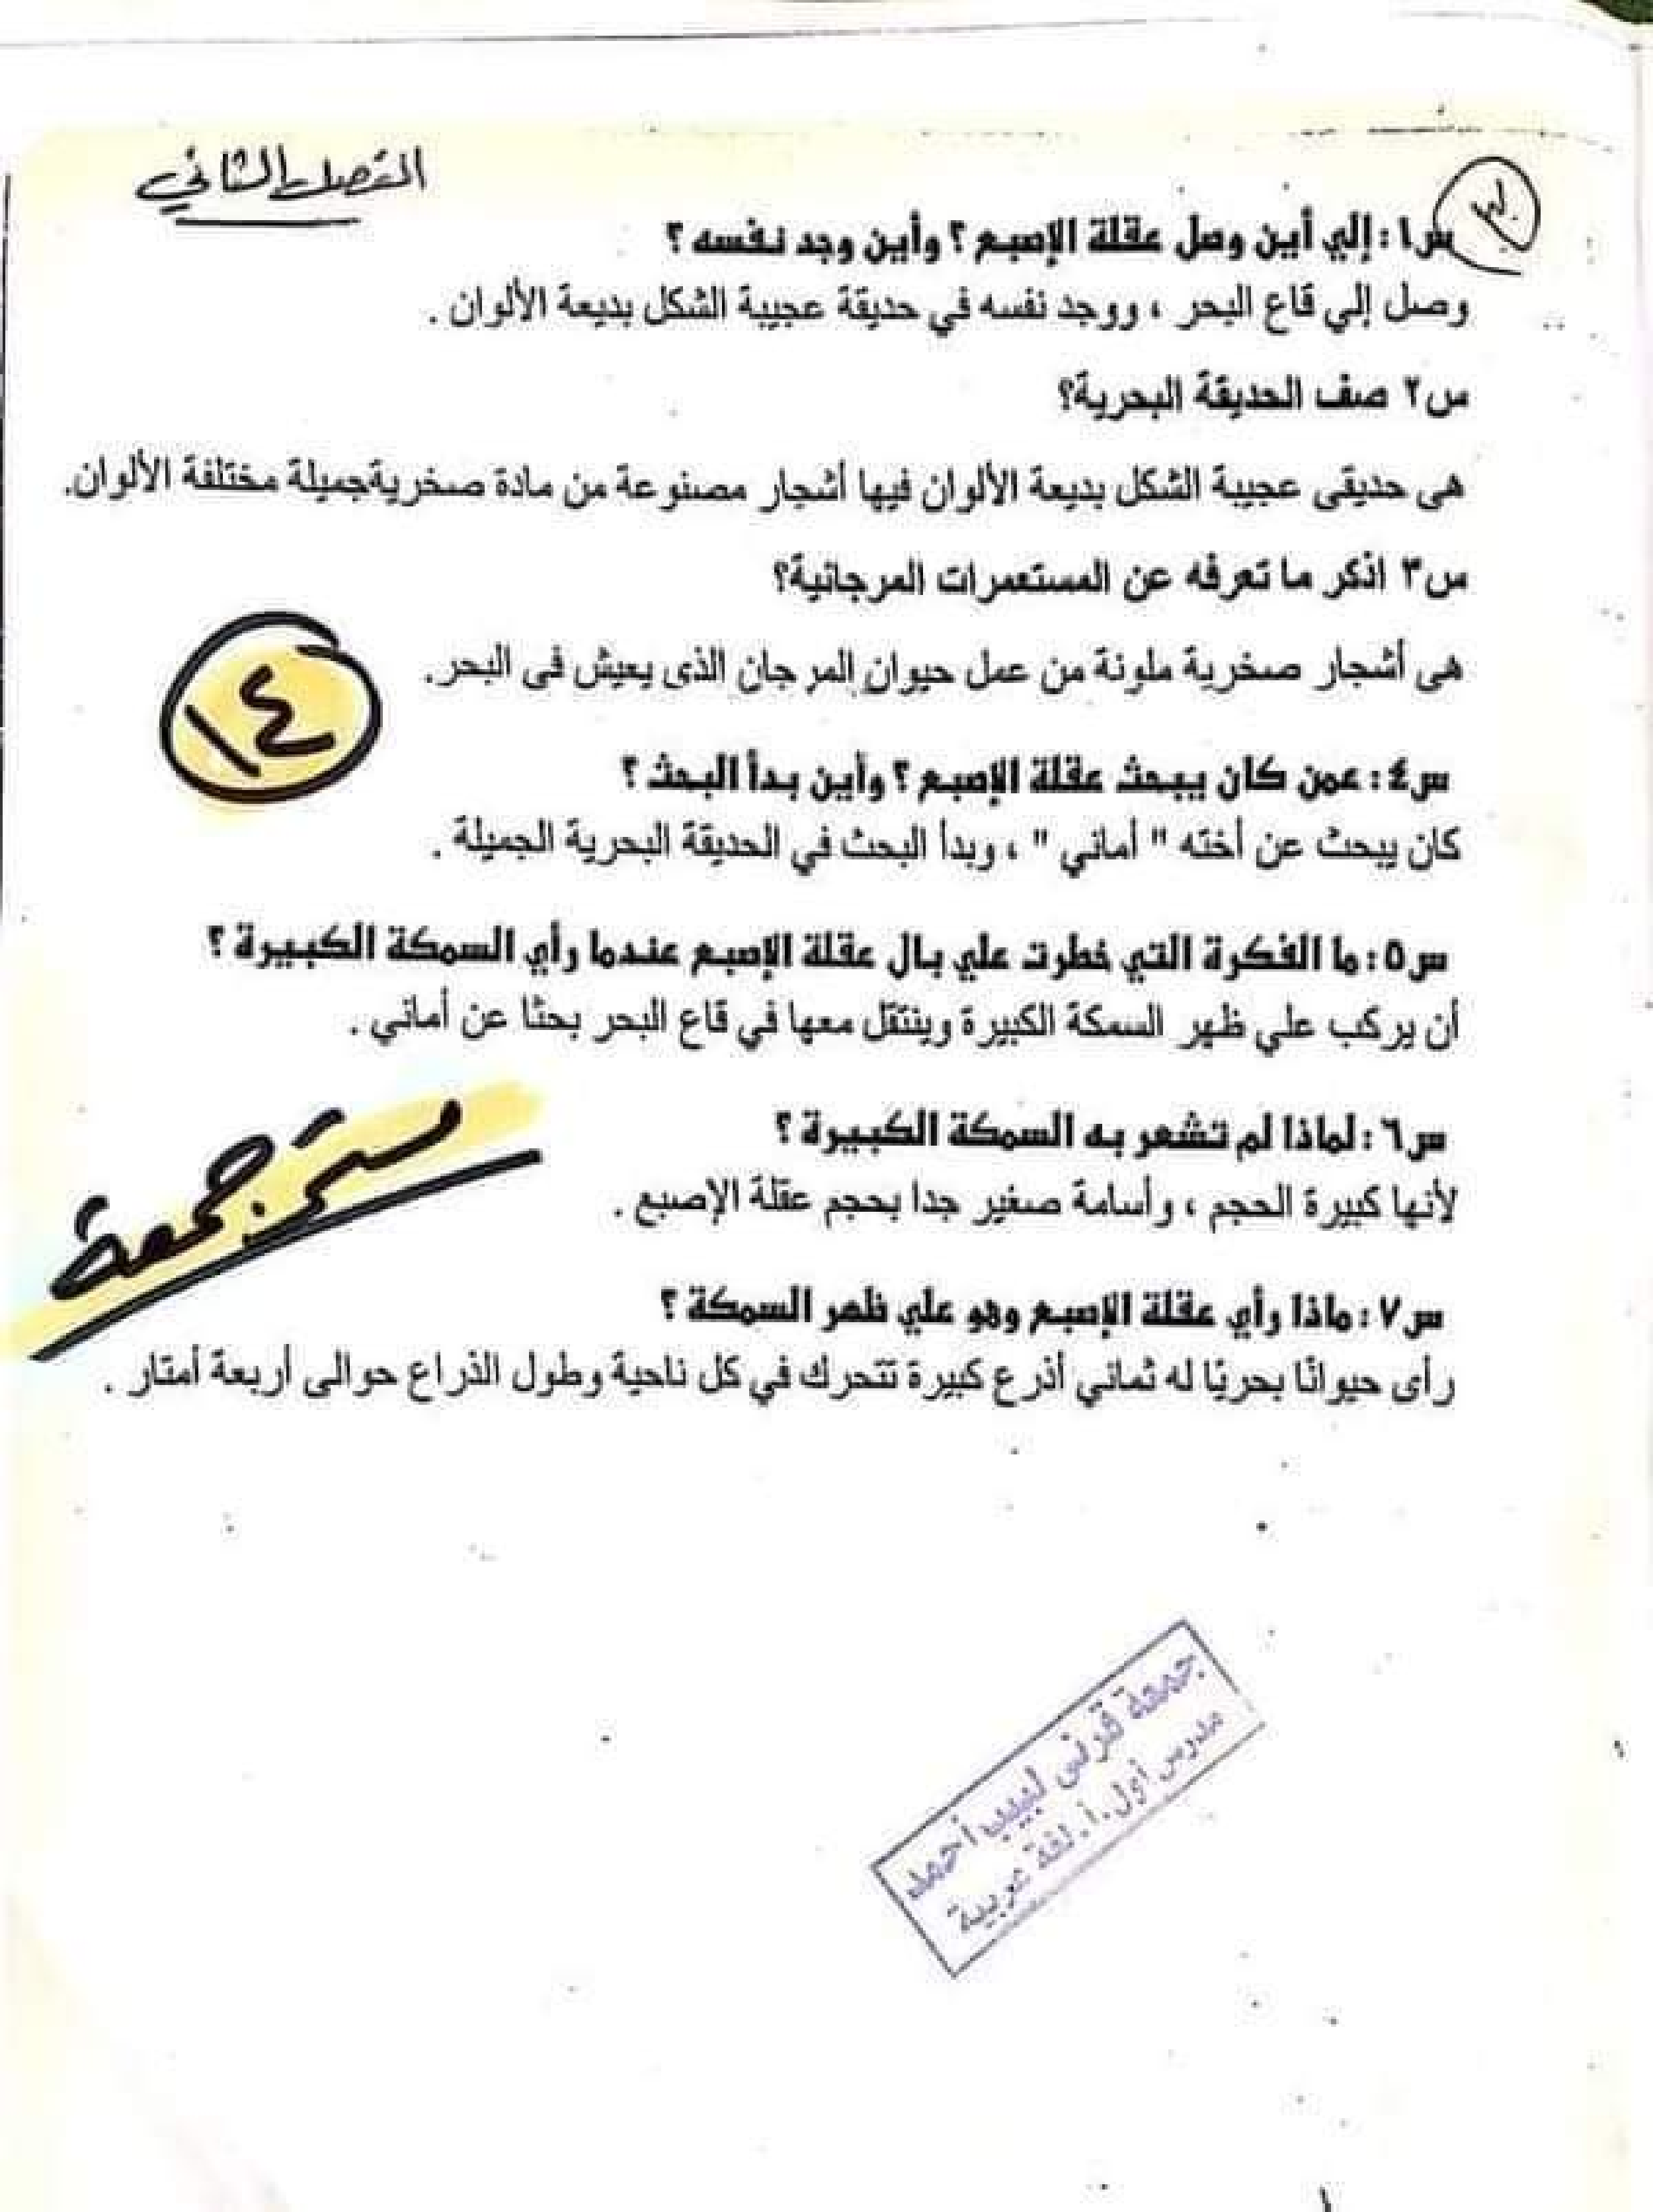 الفصل الثاني
س١ : إلي أين وصل عقلة الإصبع ؟ وأين وجد نفسه ؟
وصل إلي قاع البحر ، ووجد نفسه في حديقة عجيبة الشكل بديعة الألوان .
س٢ صف الحديقة البحرية؟
هى حديقى عجيبة الشكل بديعة الألوان فيها أشجار مصنوعة من مادة صخريةجميلة مختلفة الألوان.
س٣ اذكر ما تعرفه عن المستعمرات المرجانية؟
هى أشجار صخرية ملونة من عمل حيوان المرجان الذى يعيش فى البحر.
١٤
س٤ : عمن كان يبحث عقلة الإصبع ؟ وأين بدأ البحث ؟
كان يبحث عن أخته " أماني " ، وبدأ البحث في الحديقة البحرية الجميلة .
س٥ : ما الفكرة التي خطرت علي بال عقلة الإصبع عندما رأي السمكة الكبيرة ؟
أن يركب علي ظهر السمكة الكبيرة وينتقل معها في قاع البحر بحثا عن أماني .
س٦ : لماذا لم تشعر به السمكة الكبيرة ؟
لأنها كبيرة الحجم ، وأسامة صغير جدا بحجم عقلة الإصبع .
مستر جمعة
س٧ : ماذا رأي عقلة الإصبع وهو علي ظهر السمكة ؟
رأى حيوانًا بحريًا له ثماني أذرع كبيرة تتحرك في كل ناحية وطول الذراع حوالى أربعة أمتار .
جمعة قرني لبيب أحمد
مدرس أول .أ. لغة عربية
١